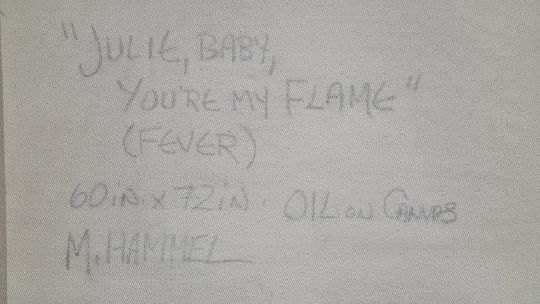 "JULIE, BABY,
YOU'RE MY FLAME"
(FEVER)
60in x 72in. OIL ON CANVAS
M. HAMMEL